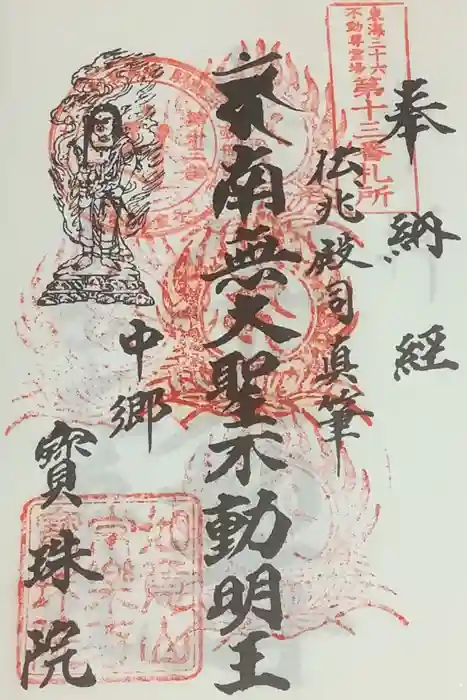 東海三十六
不動尊霊場
第十三番札所
奉納経
伝兆殿司真筆
南無大聖不動明王
中郷
寳珠院